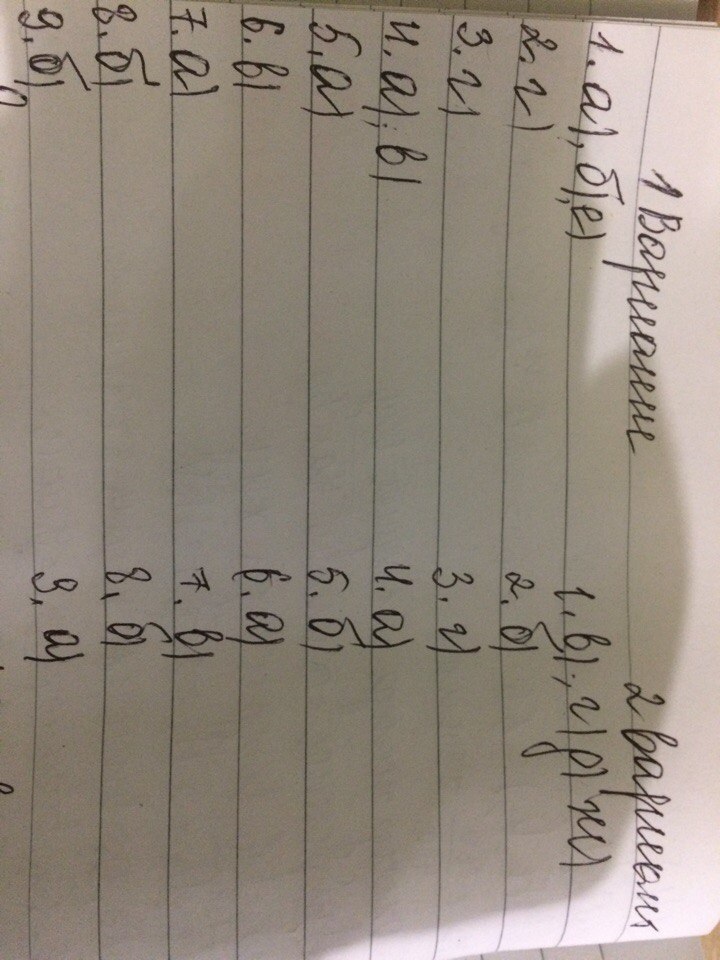 1 Вариант 2 вариант
1. а), б), е) 1. в); г) д) ж)
2. г) 2. б)
3. г) 3. г)
4. а); в) 4. а)
5. а) 5. б)
6. в) 6. а)
7. а) 7. в)
8. б) 8. б)
9. б) 9. а)